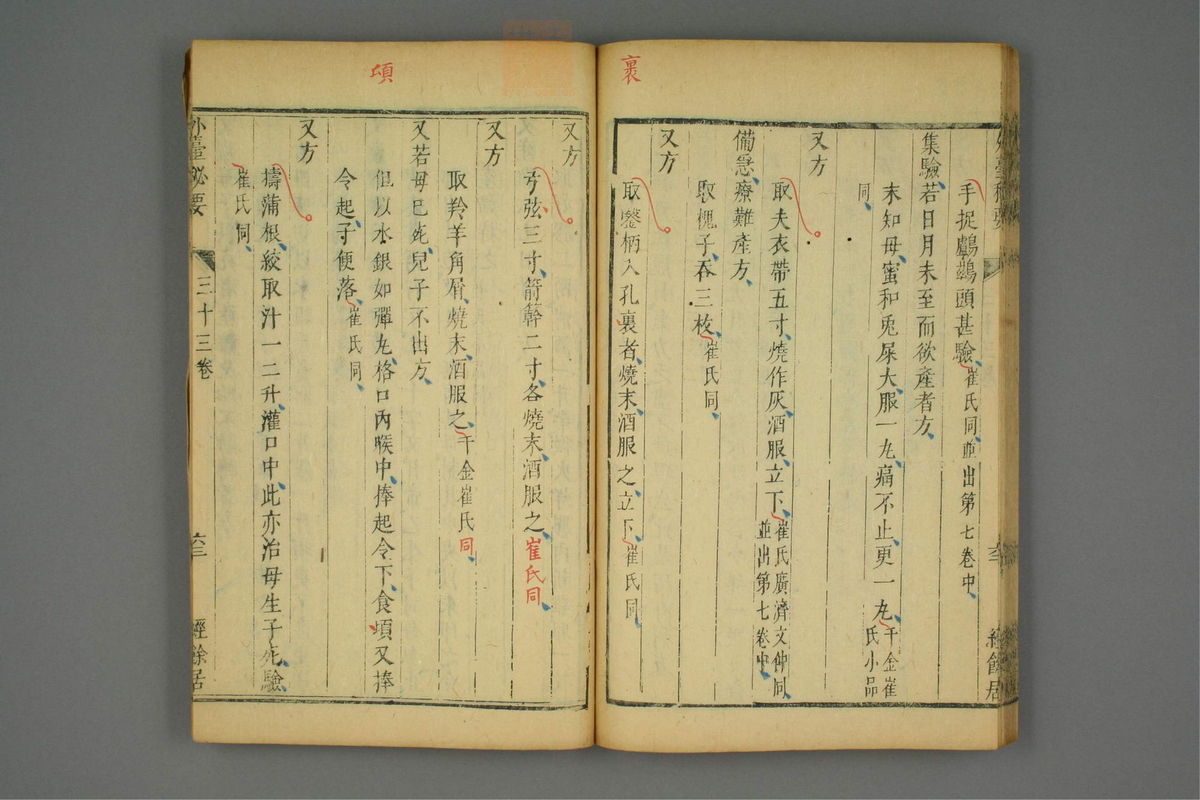 裹
手捉鸕鷀頭甚驗崔氏同並出第七卷中
集驗若日月未至而欲產者方
末知母蜜和兎屎大服一丸痛不止更一丸千金崔氏小品同
又方
取夫衣帶五寸燒作灰酒服立下崔氏廣濟文仲同並出第七卷中
備急療難產方
取槐子吞三枚崔氏同
又方
取鑿柄入孔裏者燒末酒服之立下崔氏同
項
又方
弓弦三寸箭簳二寸各燒末酒服之崔氏同
又方
取羚羊角屑燒末酒服之千金崔氏同
又若母已死兒子不出方
但以水銀如彈丸格口內喉中捧起令下食頃又捧
令起子便落崔氏同
又方
擣蒲根絞取汁一二升灌口中此亦治母生子死驗
崔氏同
外臺秘要 三十三卷 六三 經餘居